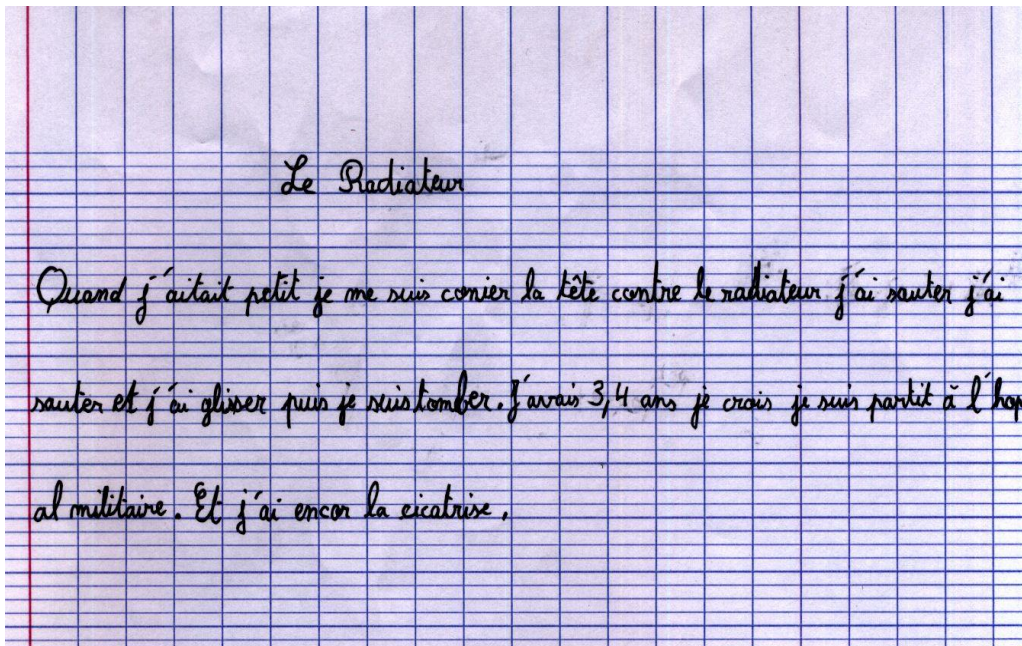 Le Radiateur
Quand j'aitait petit je me suis conier la tête contre le radiateur j'ai sauter j'ai
sauter et j'ai glisser puis je suis tomber. J'avais 3,4 ans je crois je suis partit à l'hop
al militaire. Et j'ai encor la cicatrise.